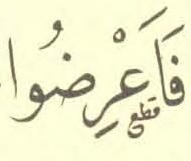 فَاَعْرِضُوا
قطع